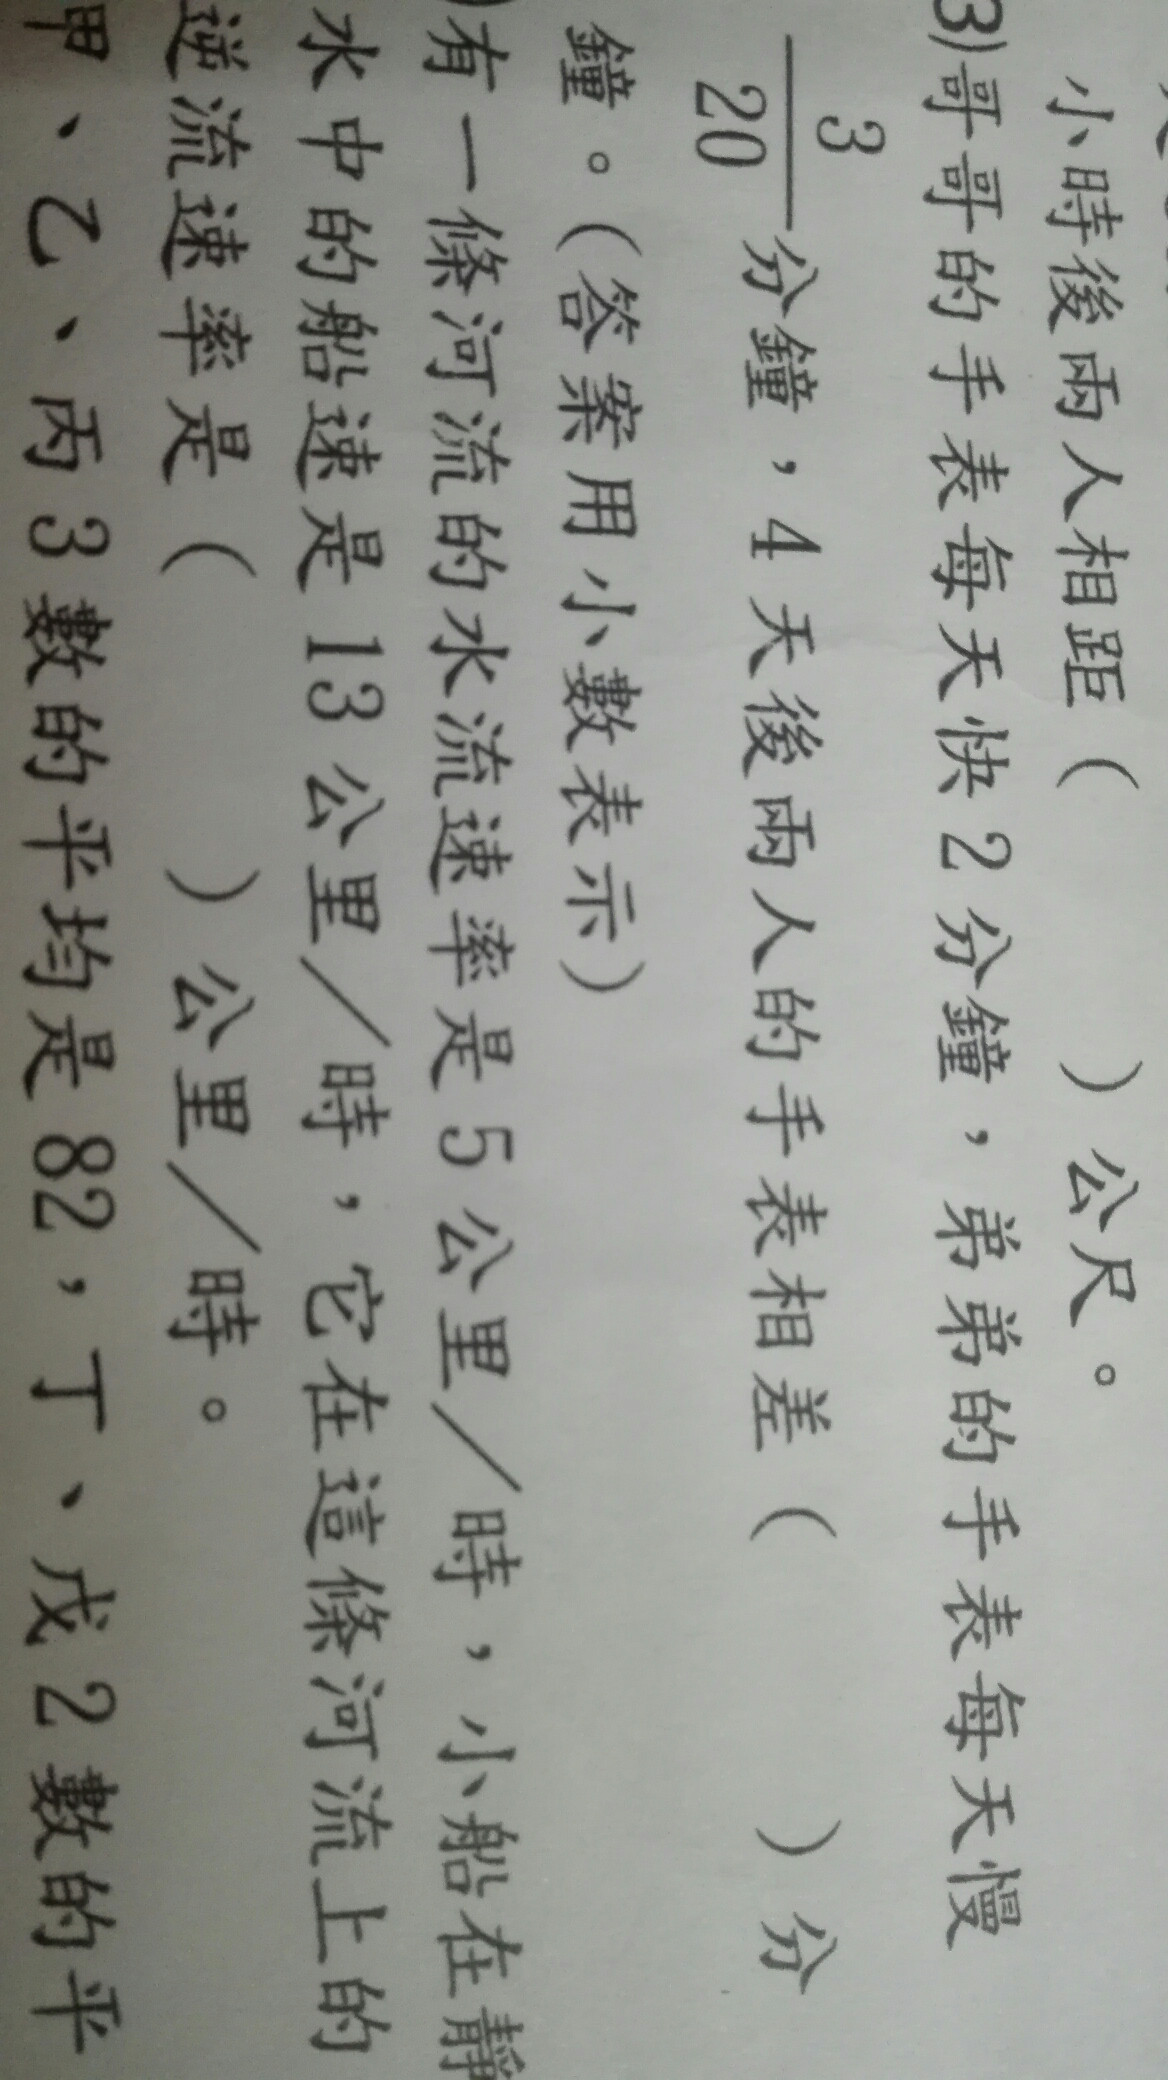 小時後兩人相距(　　)公尺。
3)哥哥的手表每天快2分鐘，弟弟的手表每天慢
3/20分鐘，4天後兩人的手表相差(　　)分
鐘。(答案用小數表示)
)有一條河流的水流速率是5公里／時，小船在靜
水中的船速是13公里／時，它在這條河流上的
逆流速率是(　　)公里／時。
甲、乙、丙3數的平均是82，丁、戊2數的平